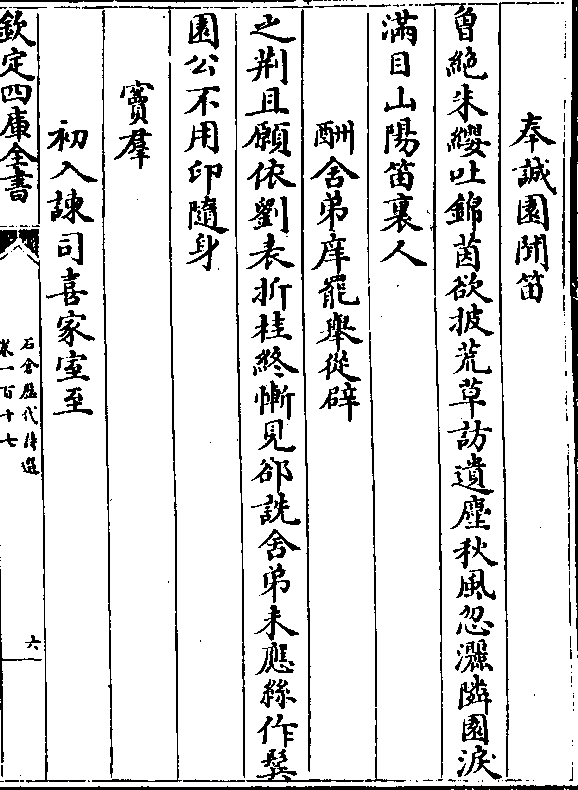 奉誠園聞笛
曾絶朱纓吐錦茵欲披荒草訪遺塵秋風忽灑隣園淚
滿目山陽笛裏人
酬舍弟庠罷舉從辟
之荆且願依劉表折桂終慚見郤詵舍弟未應絲作鬢
園公不用印隨身
竇羣
初入諫司喜家室至
欽定四庫全書
石倉歷代詩選
卷一百十七
六